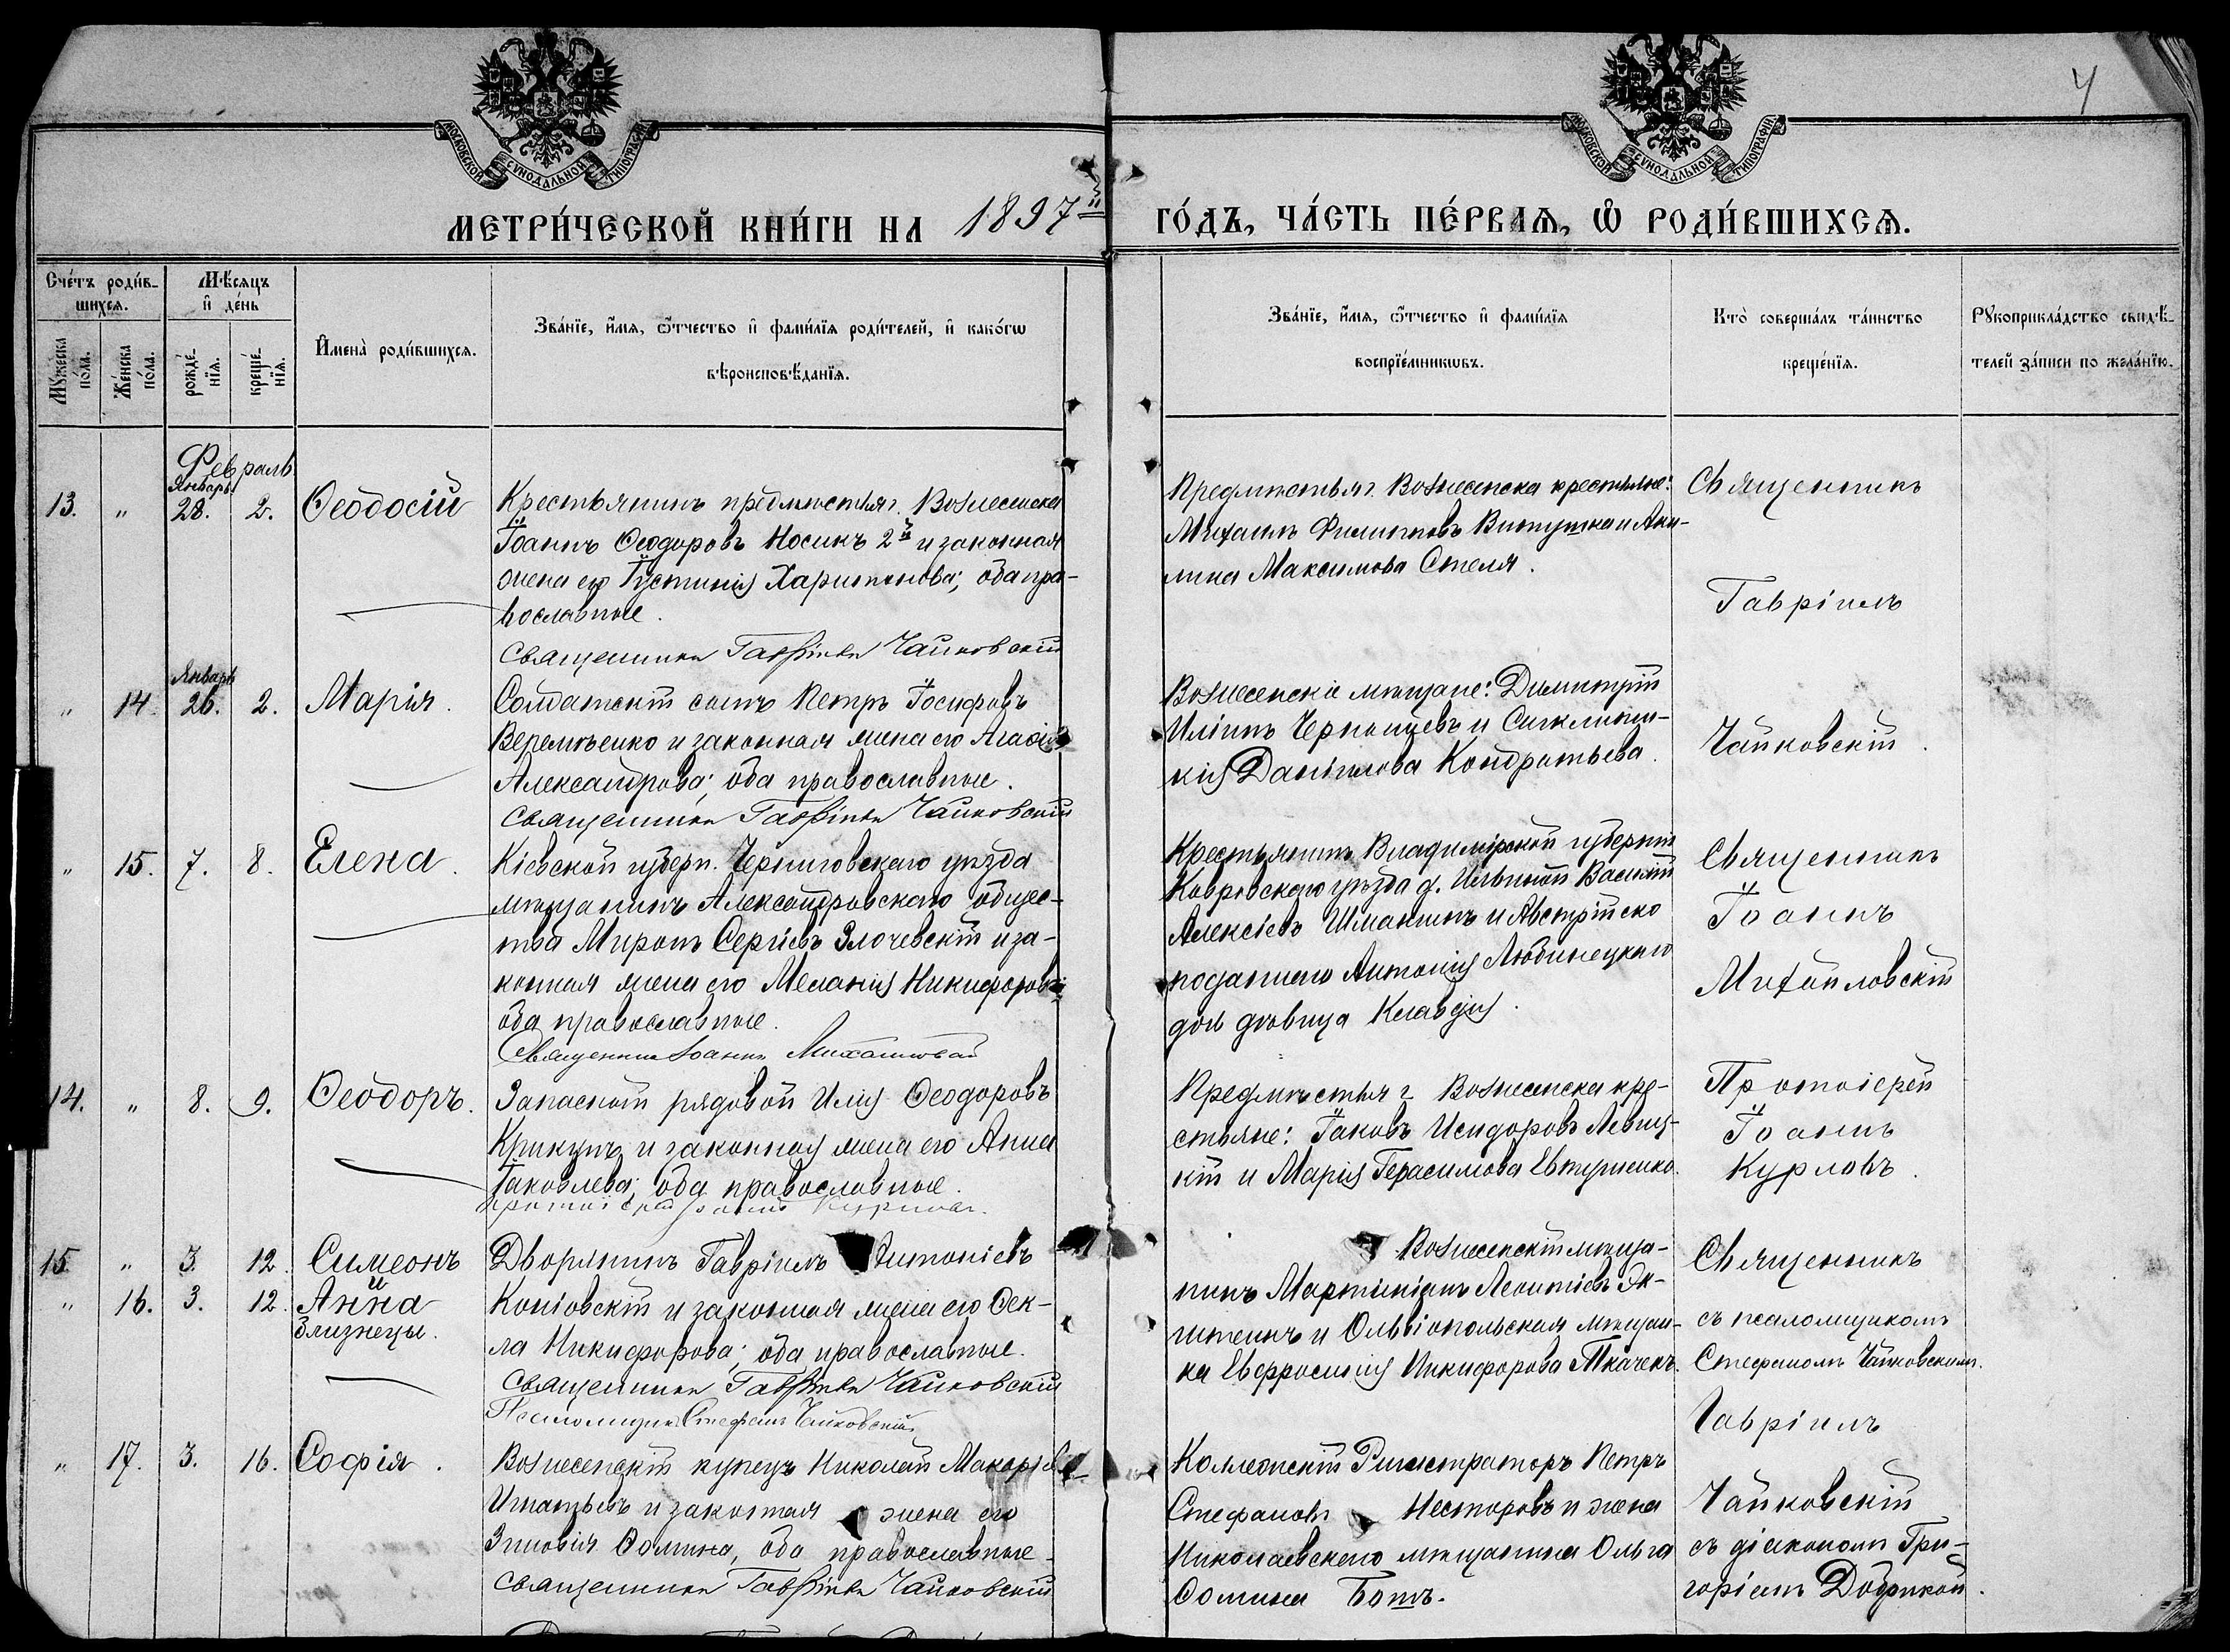 МОСКОВСКОЙ СѴНОДАЛЬНОЙ ТИПОГРАФІИ
МОСКОВСКОЙ СѴНОДАЛЬНОЙ ТИПОГРАФІИ
4
МЕТРИ́ЧЕСКОЙ КНИ́ГИ НА 1897й ГО́ДЪ, ЧА́СТЬ ПЕ́РВАѦ, Ѡ҆ РОДИ́ВШИХСѦ.
Сче́тъ роди́в-
шихсѧ.
Мꙋ́жеска по́ла.
Же́нска по́ла.
Мѣ́сѧцъ
и҆ де́нь
рожде́-
нїѧ.
креще́-
нїѧ.
И҆мена̀ роди́вшихсѧ.
Зва́нїе, и҆́мѧ, ѻ҆́тчество и҆ фами́лїѧ роди́телей, и҆ како́гѡ
вѣроисповѣ́данїѧ.
Зва́нїе, и҆́мѧ, ѻ҆́тчество и҆ фами́лїѧ
воспрїе́мникѡвъ.
Кто̀ соверша́лъ та́инство
креще́нїѧ.
Рꙋкоприкла́дство свидѣ́-
телей за́писи по жела́нїю.
Февраль
Январь
13. " 28. 2. Ѳеодосій
Крестьянинъ предмѣстья г. Вознесенска
Іоаннъ Ѳеодоровъ Носикъ 2й и законная
жена его Іустинія Харитонова; оба пра-
вославные.
Священникъ Гавріилъ Чайковскій
Предмѣстья г. Вознесенска крестьяне:
Михаилъ Филипповъ Витушка и Аки-
лина Максимова Стеля.
Священникъ
Гавріилъ
Чайковскій.
Январь
" 14. 26. 2. Марія.
Солдатскій сынъ Петръ Іосифовъ
Веремѣенко и законная жена его Агафія
Александрова; оба православные.
Священникъ Гавріилъ Чайковскій
Вознесенскіе мѣщане: Димитрій
Иліинъ Черномцевъ и Сигклити-
кія Даніилова Кондратьева.
" 15. 7. 8. Елена.
Кіевской губерн. Черниговскаго уѣзда
мѣщанинъ Александровскаго общес-
тва Миронъ Сергіевъ Злочевскій и за-
конная жена его Меланія Никифорова
оба православные.
Священникъ Іоаннъ Михайловскій
Крестьянинъ Владимірской губерніи
Ковровскаго уѣзда д. Ильиной Василій
Алексіевъ Шманинъ и Австрійско
подданнаго Антонія Любинецкаго
дочь дѣвица Клавдія.
Священникъ
Іоаннъ
Михайловскій
14. " 8. 9. Ѳеодоръ.
Запасной рядовой Илія Ѳеодоровъ
Крикунъ и законная жена его Анна
Іаковлева; оба православные.
Протоіерей Іоаннъ Курловъ.
Предмѣстья г. Вознесенска кре-
стьяне: Іаковъ Исидоровъ Левиц-
кій и Марія Герасимова Евтушенко.
Протоіерей
Іоаннъ
Курловъ.
15 " 3 12. Симеонъ
" 16. 3. 12. Анна
близнецы.
Дворянинъ Гавріилъ Антоніевъ
Коніовскій и законная жена его Ѳек-
ла Никифорова; оба православные.
Священникъ Гавріилъ Чайковскій
Псаломщикъ Стефанъ Чайковскій
Вознесенскій мѣща-
нинъ Мартиніанъ Леонтіевъ Эк-
штеинъ и Ольвіопольская мѣщан-
ка Евфросинія Никифорова Ткачекъ.
Священникъ
съ псаломщикомъ
Стефаномъ Чайковскимъ.
Гавріилъ
Чайковскій
съ діакономъ Гри-
горіемъ Добрикой.
" 17. 3. 16. Софія.
Вознесенскій купецъ Николай Макаріевъ
Игнатьевъ и законная жена его
Зиновія Ѳомина, оба православные.
Священникъ Гавріилъ Чайковскій
Коллежскій Регистраторъ Петръ
Стефановъ Несторовъ и жена
Николаевскаго мѣщанина Ольга
Ѳомина Ботъ.